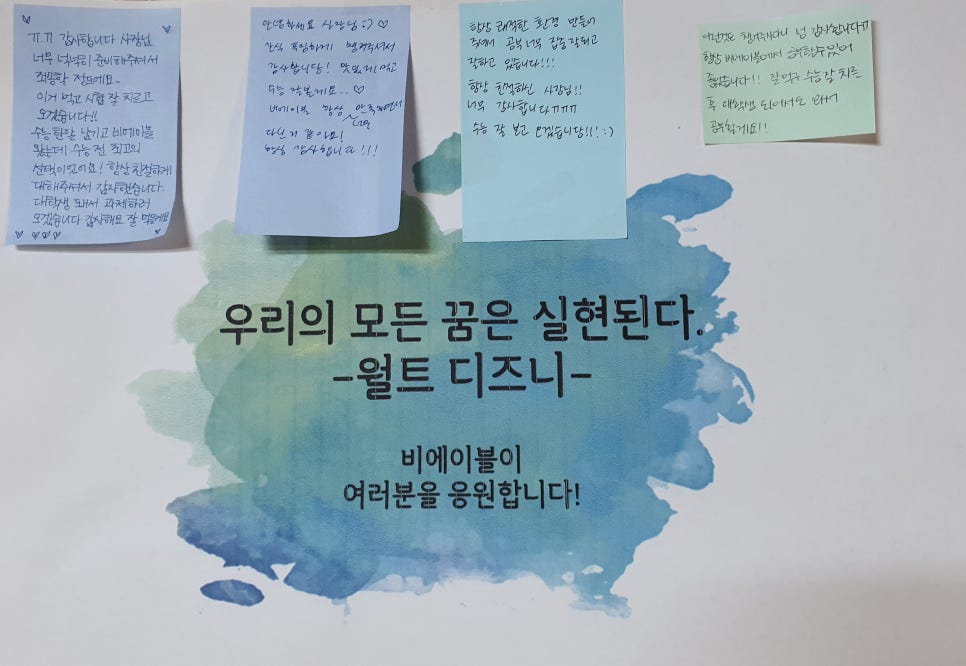 ㅠ.ㅠ 감사합니다 사장님
너무 넉넉히 준비해주셔서
죄송할 정도예요..
이거 먹고 시험 잘 치르고
오겠습니다!!
수능 한달 남기고 비에이블
왔는데 수능 전 최고의
선택이었어요! 항상 친절하게
대해주셔서 감사했습니다
대학생 돼서 과제하러
오겠습니다 감사해요 잘 먹을게요
안녕하세요 사장님 :) ♡
간식 푸짐하게 챙겨주셔서
감사합니당! 맛있게 먹고
수능 잘볼게요.. ♡
비에이블 항상 만족하면서 너무
다닌거 같아요!
항상 감사합니다!!!
항상 쾌적한 환경 만들어
주셔서 공부 너무 집중 잘되고
잘하고 있습니다!!!
항상 친절하신 사장님!!
너무 감사합니다ㅠㅠㅠ
수능 잘 보고 오겠습니당!!! :)
이런것도 챙겨주시다니 넘 감사합니다ㅠ
항상 비에이블에서 공부할수있어
좋았습니다!! 잘 먹구 수능 잘 치른
후 대학생 되어서도 와서
공부할게요!!
우리의 모든 꿈은 실현된다.
-월트 디즈니-
비에이블이
여러분을 응원합니다!